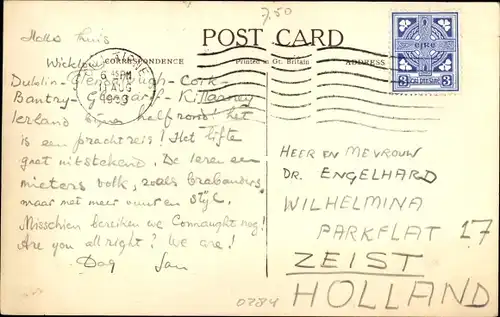 7,50
Hallo thuis
POST CARD
CORRESPONDENCE
Printed in Gt. Britain
ADDRESS
ÉIRE
3 3
6 15PM
11 AUG
1953
Wicklow
Dublin - Glendalough - Cork -
Bantry - Glengarff - Killarney
Ierland bijna half rond! het
is een pracht reis! Het liften
gaat uitstekend. De Ieren een
mieters volk, zoals brabanders
maar met meer vuur en stijl.
Misschien bereiken we Connaught nog!
Are you all right? We are!
Dag Jan
HEER EN MEVROUW
DR. ENGELHARD
WILHELMINA
PARKFLAT 17
ZEIST
HOLLAND
0784